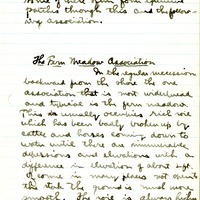 patches through this and the
ing association.
The Fern Meadow Association
In the regular succession
backward from the shore the one
association that is most widespread
and typical is the fern meadow.
This is usually occupies rich soil
which has been badly broken up by
cattle and horses coming down to
water until there are innumerable
depressions and elevations with a
difference in elevation of about 1 foot.
Of course in many places not openly
this the ground is much more
smooth. The soil is always